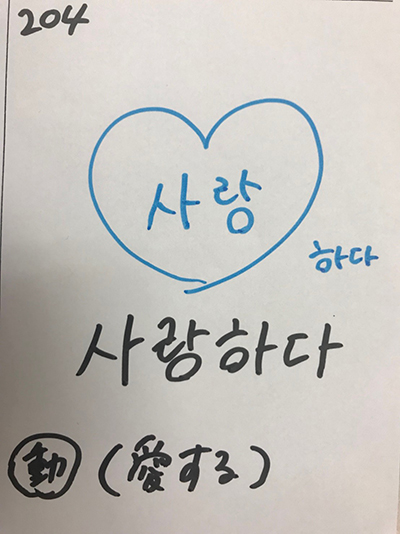 204
사랑
하다
사랑하다
動 (愛する)